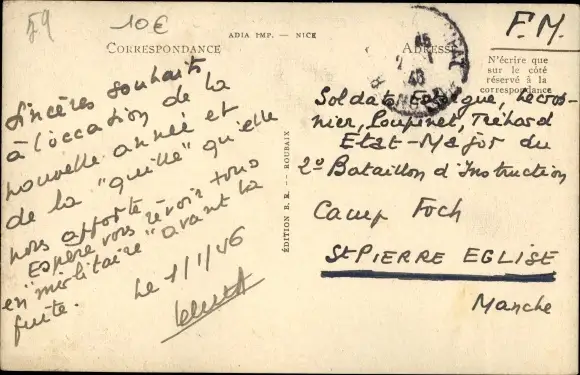 59
10€
F.M.
ADIA IMP. — NICE
CORRESPONDANCE
ADRESSE
N'écrire que
sur le côté
réservé à la
correspondance
Sincères souhaits
à l'occasion de la
nouvelle année et
de la "quille" qu'elle
nous apporte -
Espère vous revoir tous
en "militaire" avant la
fuite.
Le 1/1/46
ÉDITION B. R. — ROUBAIX
Soldats Lecros-
nier, Loupinet, Tréhard
Etat-Major du
2º Bataillon d'Instruction
Camp Foch
St PIERRE EGLISE
Manche